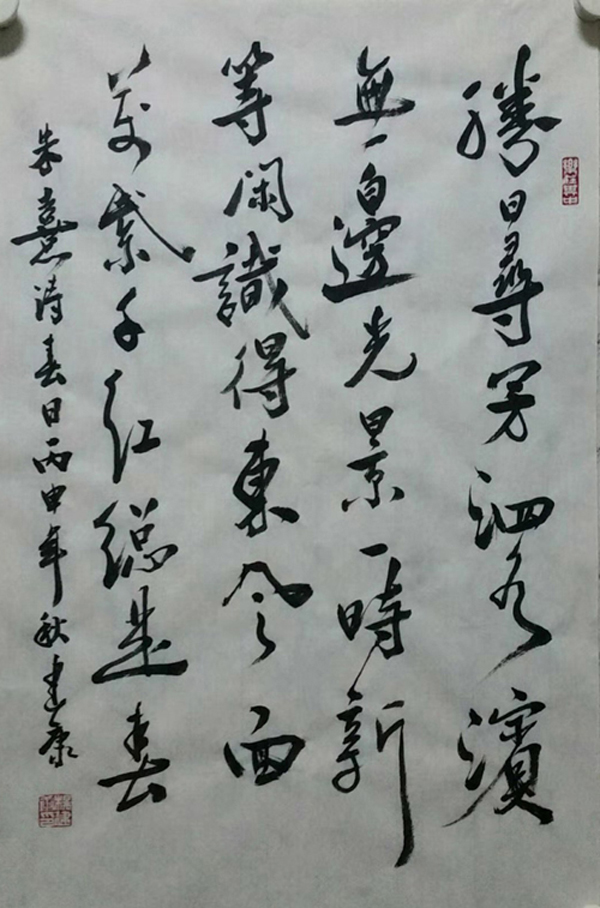 勝日尋芳泗水濱
無邊光景一時新
等閑識得東風面
萬紫千紅總是春
朱熹詩春日丙申年秋建康